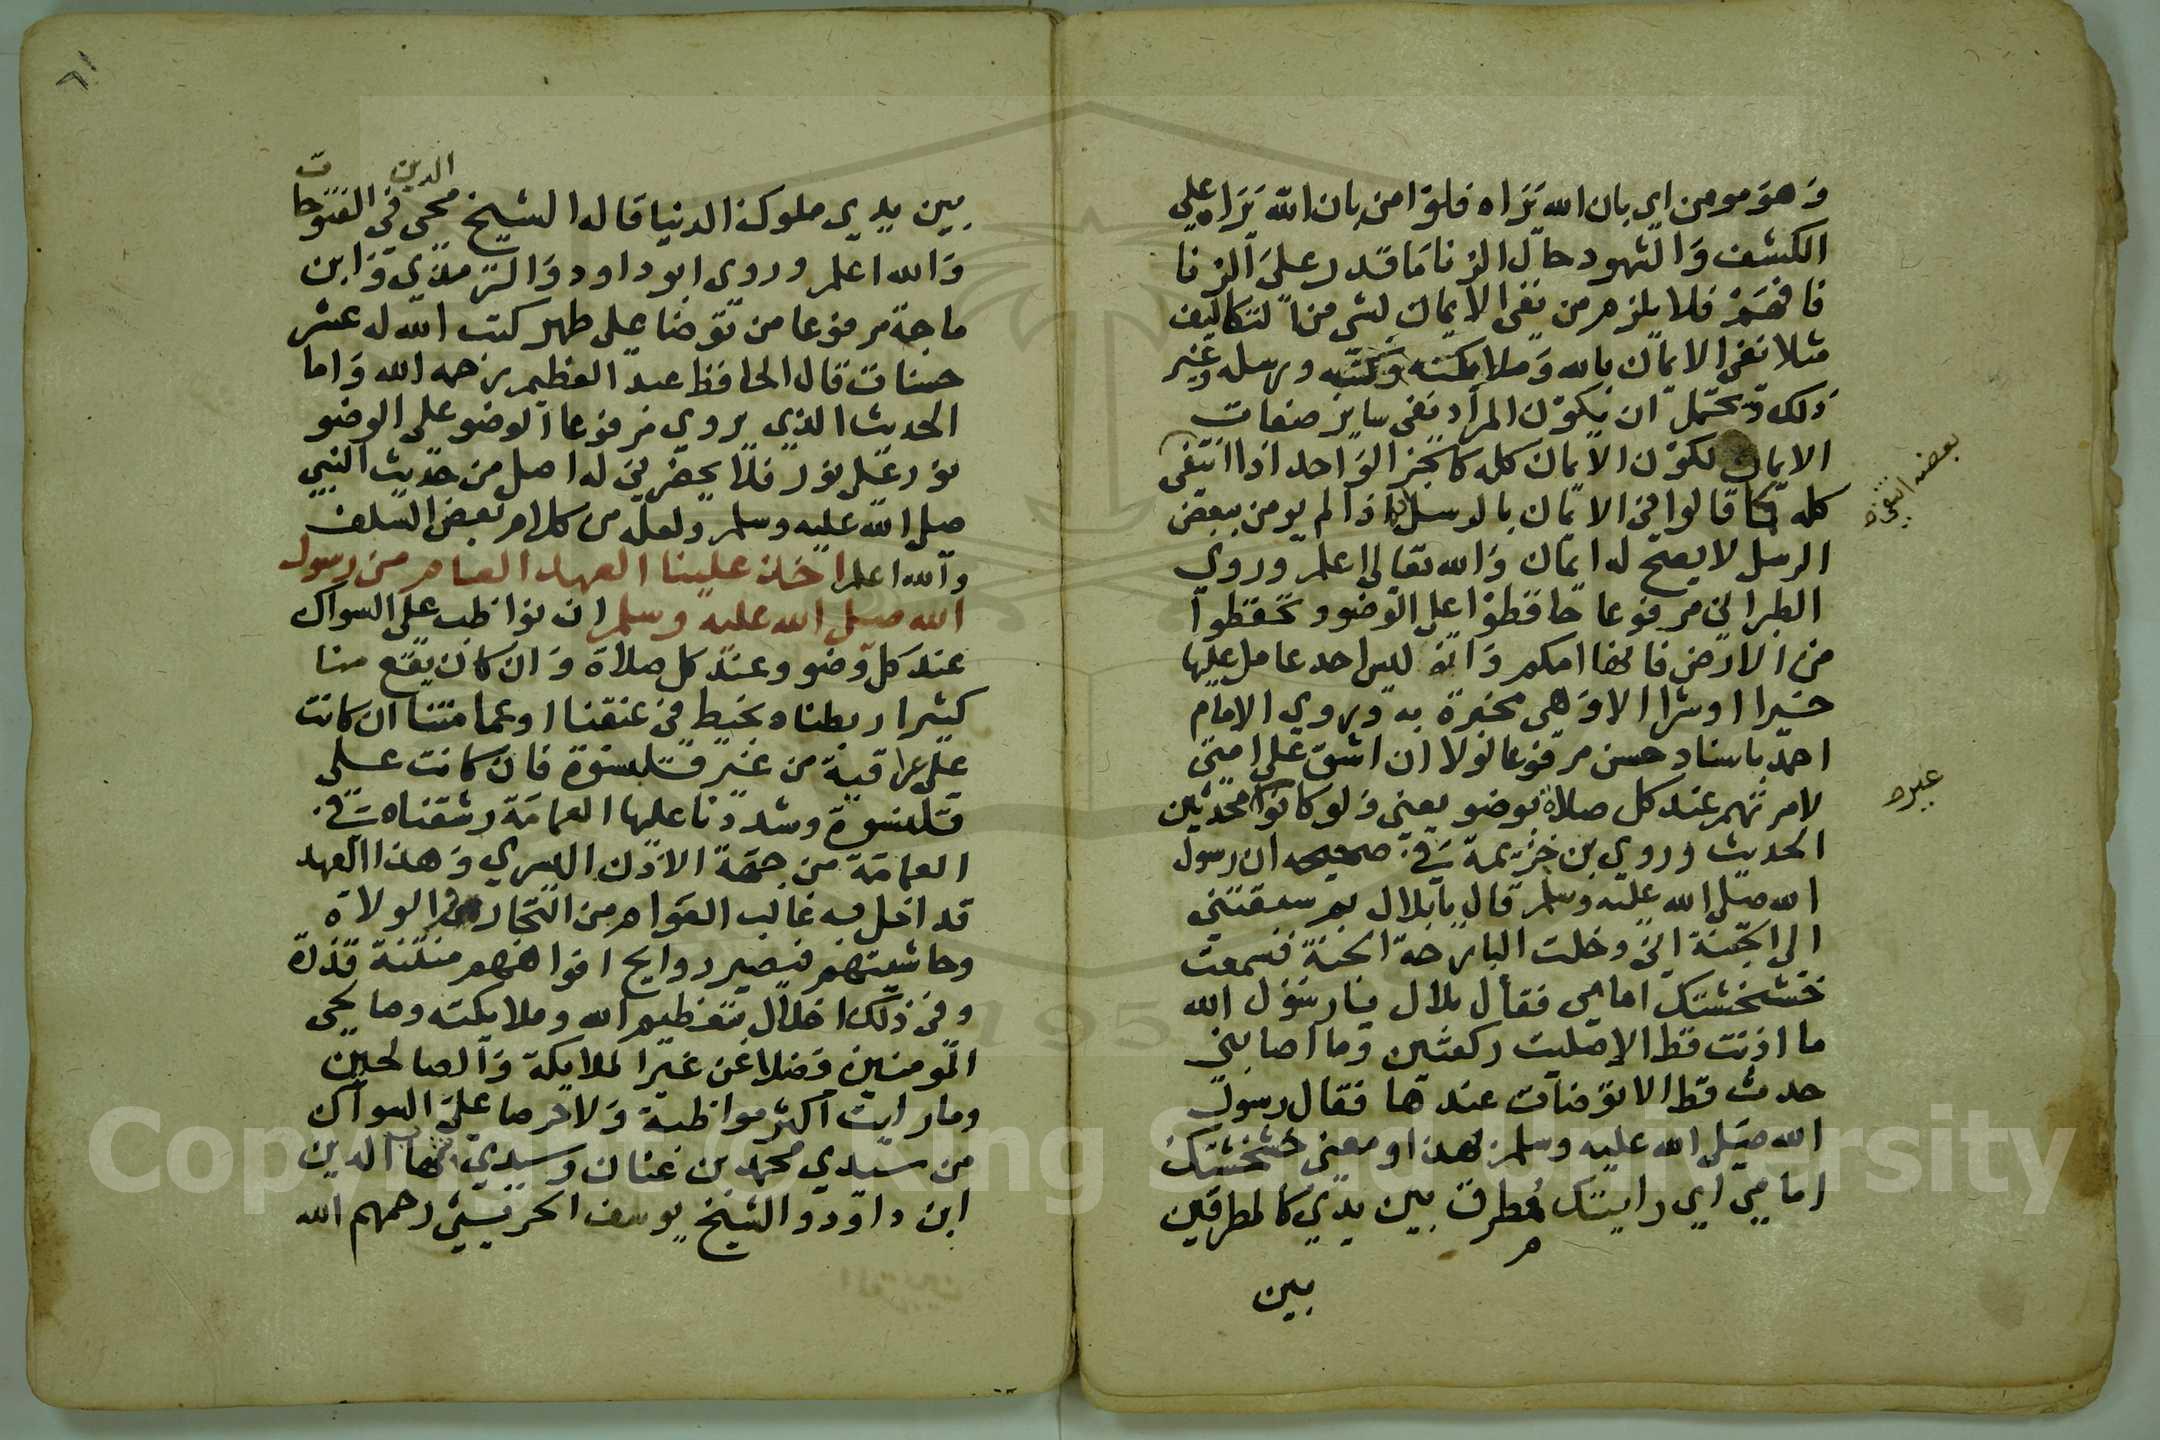 وهو مومن اي بان الله يراه فلو امن بان الله يراه علي
الكشف والشهود حال الزنا ما قدر على الزنا
فافهم فلا يلزم من نفي الايمان لشي من التكاليف
مثلا نفي الايمان بالله وملايكته وكتبه ورسله وغير
ذلك ويحتمل ان يكون المراد نفي ساير صفات
الايمان لكون الايمان كله كالجز الواحد اذا انتفى
بعضه انتفى
كله كما قالوا في الايمان بالرسل اذا لم يومن ببعض
الرسل لا يصح له ايمان والله تعالى اعلم وروي
الطبراني مرفوعا حافظوا على الوضو وتحفظوا
من الارض فانها امكم وانه ليس احد عامل عليها
خيرا او شرا الا وهي مخبرة به وروي الامام
احمد باسناد حسن مرفوعا لولا ان اشق على امتي
لامرتهم عند كل صلاة بوضو يعني ولو كانوا محدثين
غير
الحديث وروي بن خزيمة في صحيحه ان رسول
الله صلى الله عليه وسلم قال يا بلال بم سبقتني
الى الجنة اني دخلت البارحة الجنة فسمعت
خشخشتك امامي فقال بلال يا رسول الله
ما اذنت قط الا صليت ركعتين وما اصابني
حدث قط الا توضات عندها فقال رسول
الله صلى الله عليه وسلم بهذا ومعنى خشخشتك
امامي اي رايتك مطرق بين يدي كالمطرقين
بين
بين يدي ملوك الدنيا قاله الشيخ محي الدين في الفتوحات
والله اعلم وروى ابو داود والترمذي وابن
ماجة مرفوعا من توضا على طهر كتب الله له عشر
حسنات قال الحافظ عبد العظيم رحمه الله واما
الحديث الذي يروي مرفوعا الوضو على الوضو
نور على نور فلا يحضرني له اصل من حديث النبي
صلى الله عليه وسلم ولعله من كلام بعض السلف
والله اعلم اخذ علينا العهد العام من رسول
الله صلى الله عليه وسلم ان نواظب على السواك
عند كل وضو وعند كل صلاة وان كان يقع منا
كثيرا ربطناه بخيط في عنقنا او عمامتنا ان كانت
على عراقية من غير قلنسوة فان كانت على
قلنسوة وشددنا عليها العمامة رشقناه في
العمامة من جهة الاذن اليسري وهذا العهد
قد اخل به غالب العوام من التجار والولاة
وحاشيتهم فتصير روايح افواههم منتنة قذرة
وفي ذلك اخلال بتعظيم الله وملايكته وصالحي
المومنين فضلا عن غير الملايكة والصالحين
وما رايت اكثر مواظبة ولا حرصا على السواك
من سيدي محمد بن عنان وسيدي شهاب الدين
ابن داود والشيخ يوسف الحريثي رحمهم الله
Copyright © King Saud University
1957